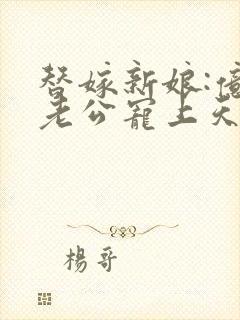 替嫁新娘:億
老公寵上天
楊哥